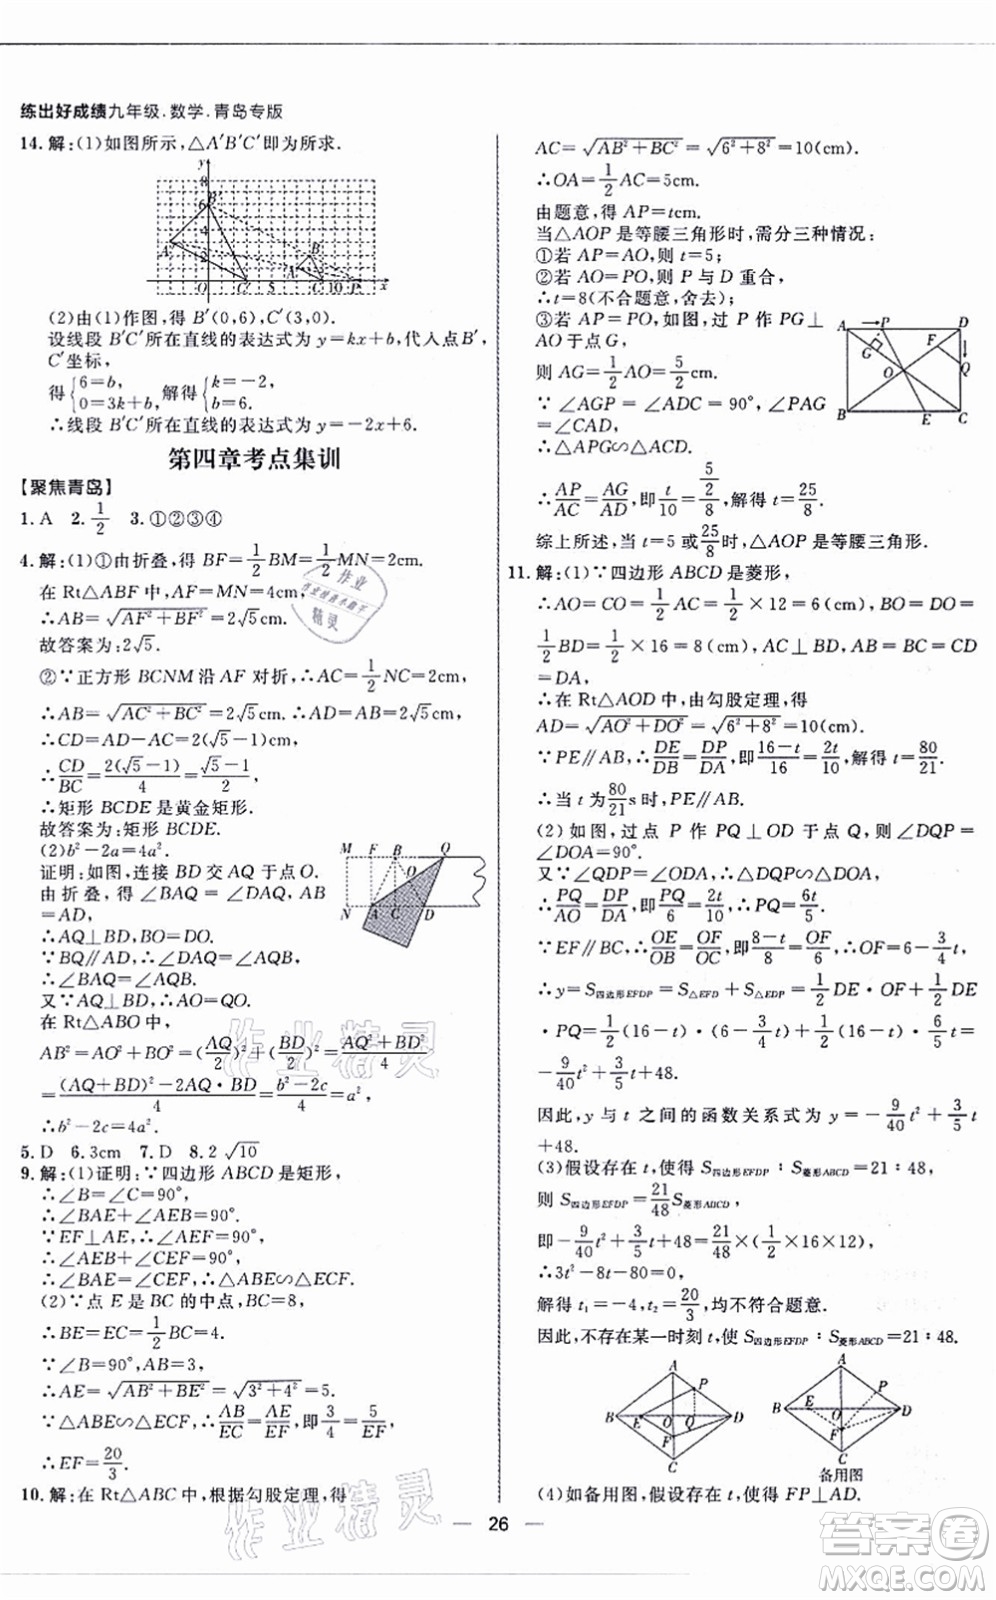 练出好成绩九年级.数学.青岛专版
14.解:(1)如图所示,△A′B′C′即为所求.
y
8
6
4
2
B′
A′
A
B
O
C′
5
C
10
x
(2)由(1)作图,得 B′(0,6),C′(3,0).
设线段 B′C′所在直线的表达式为 y=kx+b,代入点 B′,
C′坐标,
得{6=b, 0=3k+b,解得{k=-2, b=6.
∴线段 B′C′所在直线的表达式为 y=-2x+6.
第四章考点集训
【聚焦青岛】
1.A 2.1/2 3.①②③④
4.解:(1)①由折叠,得 BF=1/2BM=1/2MN=2cm.
在 Rt△ABF 中,AF=MN=4cm,
∴AB=√(AF²+BF²)=2√5cm.
故答案为:2√5.
②∵正方形 BCNM 沿 AF 对折,∴AC=1/2NC=2cm,
∴AB=√(AC²+BC²)=2√5cm.∴AD=AB=2√5cm,
∴CD=AD-AC=2(√5-1)cm,
∴CD/BC=2(√5-1)/4=(√5-1)/2,
∴矩形 BCDE 是黄金矩形.
故答案为:矩形 BCDE.
(2)b²-2a=4a².
证明:如图,连接 BD 交 AQ 于点 O.
由折叠,得∠BAQ=∠DAQ,AB
=AD,
∴AQ⊥BD,BO=DO.
∵BQ∥AD,∴∠BQA=∠QAD.
∴∠BAQ=∠BQA,∴AB=BQ.
又∵AQ⊥BD,∴AO=QO.
M F B Q
O
N A C D
在 Rt△ABO 中,
AB²=AO²+BO²=(AQ/2)²+(BD/2)²=(AQ²+BD²)/4
=((AQ+BD)²-2AQ·BD)/4=(b²-2c)/4=a²,
∴b²-2c=4a².
5.D 6.3cm 7.D 8.2√10
9.解:(1)证明:∵四边形 ABCD 是矩形,
∴∠B=∠C=90°,
∴∠BAE+∠AEB=90°.
∵EF⊥AE,∴∠AEF=90°,
∴∠AEB+∠CEF=90°.
∴∠BAE=∠CEF,∴△ABE∽△ECF.
(2)∵点 E 是 BC 的中点,BC=8,
∴BE=EC=1/2BC=4.
∵∠B=90°,AB=3,
∴AE=√(AB²+BE²)=√(3²+4²)=5.
∵△ABE∽△ECF,∴AB/EC=AE/EF,即3/4=5/EF,
∴EF=20/3.
10.解:在 Rt△ABC 中,根据勾股定理,得
AC=√(AB²+BC²)=√(6²+8²)=10(cm).
∴OA=1/2AC=5cm.
由题意,得 AP=tcm.
当△AOP 是等腰三角形时,需分三种情况:
①若 AP=AO,则 t=5;
②若 AO=PO,则 P 与 D 重合,
∴t=8(不合题意,舍去);
③若 AP=PO,如图,过 P 作 PG⊥
AO 于点 G,
则 AG=1/2AO=5/2cm.
∵∠AGP=∠ADC=90°,∠PAG
=∠CAD,
∴△APG∽△ACD,
A P D
G F
O
Q
B E C
∴AP/AC=AG/AD,即t/10=(5/2)/8,解得 t=25/8.
综上所述,当 t=5 或25/8时,△AOP 是等腰三角形.
11.解:(1)∵四边形 ABCD 是菱形,
∴AO=CO=1/2AC=1/2×12=6(cm),BO=DO=
1/2BD=1/2×16=8(cm),AC⊥BD,AB=BC=CD
=DA,
∴在 Rt△AOD 中,由勾股定理,得
AD=√(AO²+DO²)=√(6²+8²)=10(cm).
∵PE∥AB,∴DE/DB=DP/DA,即(16-t)/16=2t/10,解得 t=80/21.
∴当 t 为80/21s 时,PE∥AB.
(2)如图,过点 P 作 PQ⊥OD 于点 Q,则∠DQP=
∠DOA=90°.
又∵∠QDP=∠ODA,∴△DQP∽△DOA,
∴PQ/AO=DP/DA,即PQ/6=2t/10,∴PQ=6t/5.
∵EF∥BC,∴OE/OB=OF/OC,即(8-t)/8=OF/6,∴OF=6-3/4t,
∴y=S四边形EFDP=S△EFD+S△EDP=1/2DE·OF+1/2DE
·PQ=1/2(16-t)·(6-3/4t)+1/2(16-t)·6/5t=
-9/40t²+3/5t+48.
因此,y 与 t 之间的函数关系式为 y=-9/40t²+3/5t
+48.
(3)假设存在 t,使得 S四边形EFDP∶S菱形ABCD=21∶48,
则 S四边形EFDP=21/48S菱形ABCD,
即-9/40t²+3/5t+48=21/48×(1/2×16×12),
∴3t²-8t-80=0,
解得 t₁=-4,t₂=20/3,均不符合题意.
因此,不存在某一时刻 t,使 S四边形EFDP∶S菱形ABCD=21∶48.
A
P
B E O Q D
F
C
A
P
B E O D
F
C
备用图
(4)如备用图,假设存在 t,使得 FP⊥AD.
26
作业精灵
作业精灵
答案圈
MXQE.COM